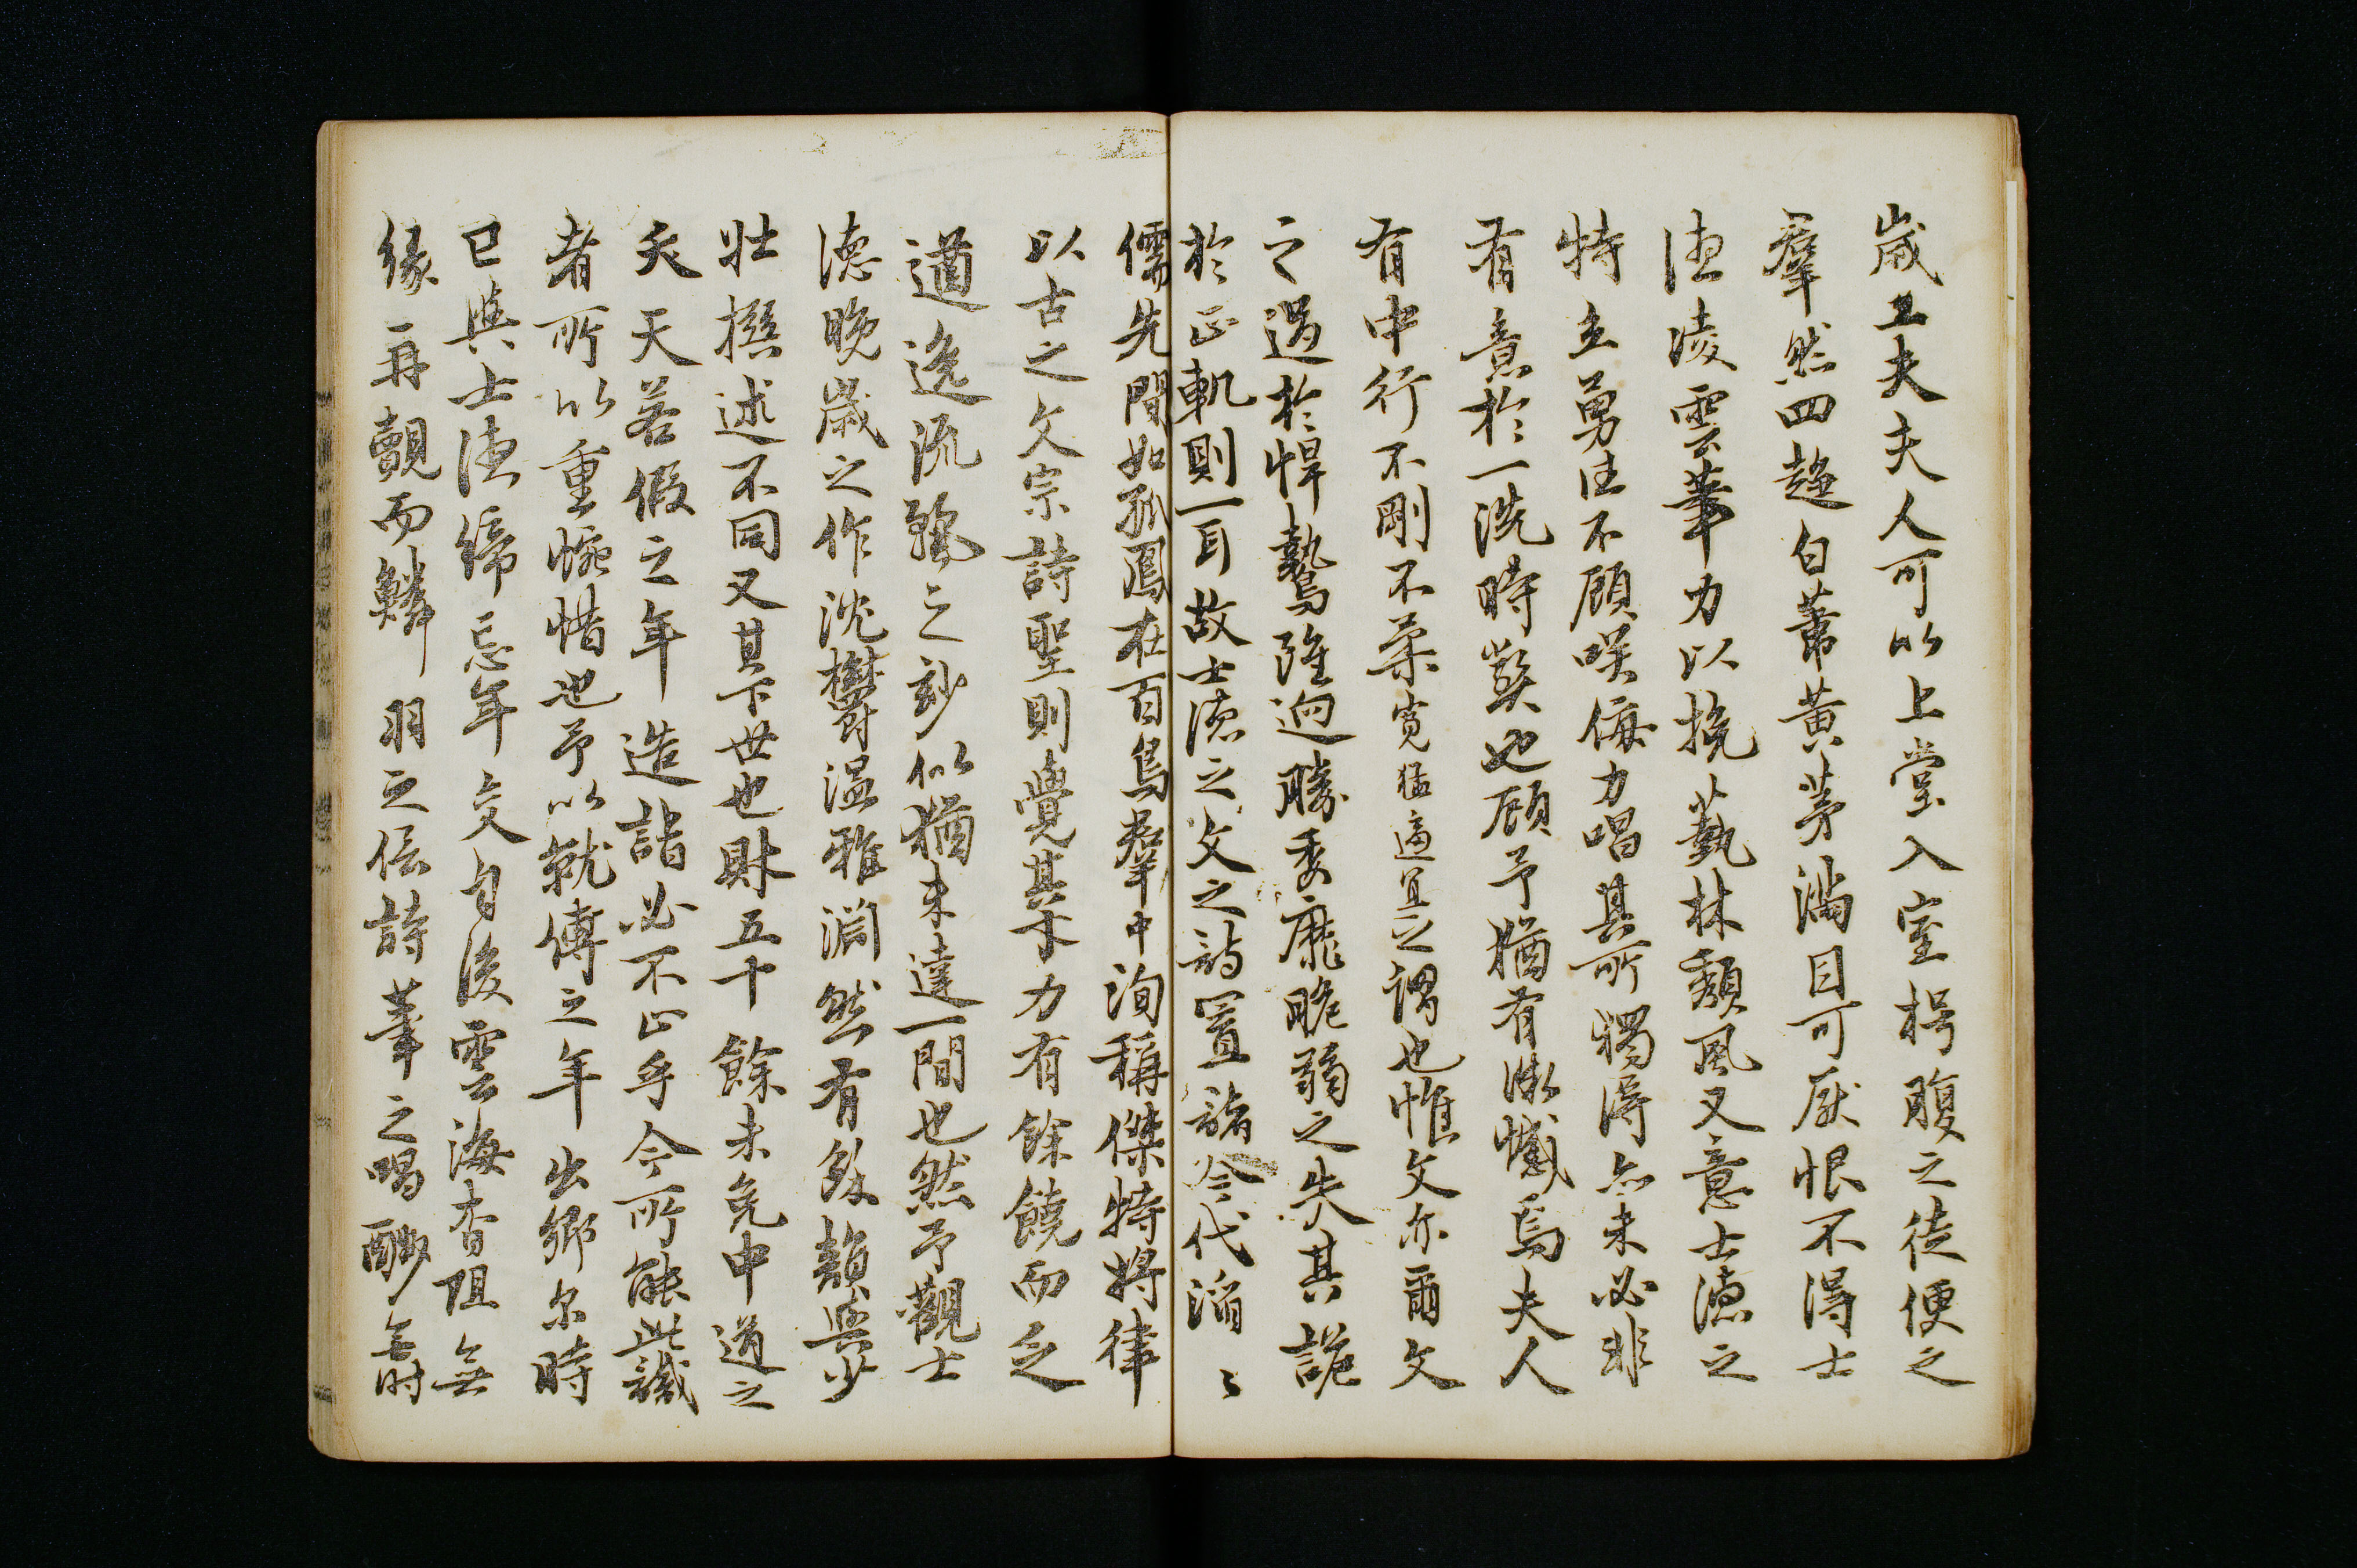 歳工夫夫人可以上堂入室枵腹之徒便之
羣然四趍白葦黄茅満目可厭恨不得士
徳凌雲筆力以挽藝林頽風又意士徳之
特立勇往不顧咲侮力唱其所獨得亦未必非
有意於一洗時弊也顧予猶有微憾焉夫人
有中行不剛不柔寛猛適宜之謂也惟文亦爾文
之過於悍鷙雄逈勝委靡脆弱之失其詭
於正軌則一耳故士徳之文之詩置諸今代滔〻
儒先間如孤鳳在百鳥羣中洵稱傑特将律
以古之文宗詩聖則覺其才力有餘饒而乏
遒逸流麗之玅似猶未達一間也然予觀士
徳晩歳之作沈欝温雅淵然有餘頗與少
壮撰述不同又其下世也財五十餘未免中道之
夭天若假之年造詣必不止乎今所能此識
者所以重惋惜也予以就傅之年出郷尓時
已與士徳締忘年交自後雲海杳阻無
縁再覿而鱗羽之伝詩筆之唱酬無時